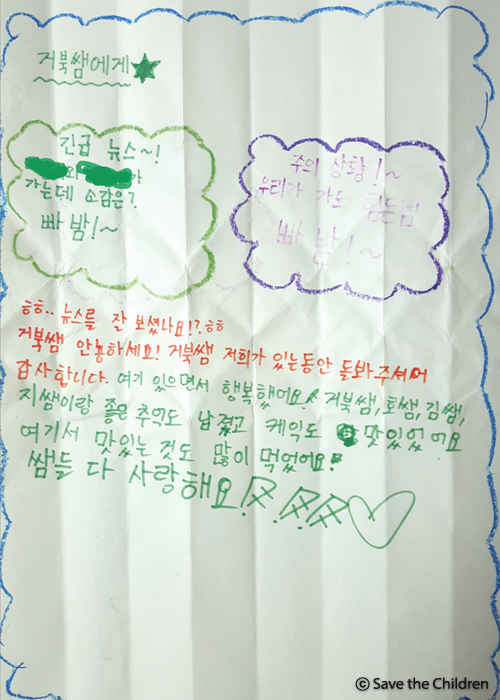 거북쌤에게
긴급 뉴스~!
와 가
가는데 소감은?
빠밤!~
주의 상황!~
우리가 가도 힘든점
빠밤!~
ㅎㅎ.. 뉴스를 잘 보셨나요!?ㅎㅎ
거북쌤 안농하세요! 거북쌤 저희가 있는동안 돌봐주셔서
감사합니다. 여기 있으면서 행복했어요! 거북쌤, 호쌤, 김쌤,
지쌤이랑 좋은 추억도 남겼고 케익도 맛있었어요
여기서 맛있는 것도 많이 먹었어요!
쌤들 다 사랑해요!
© Save the Children